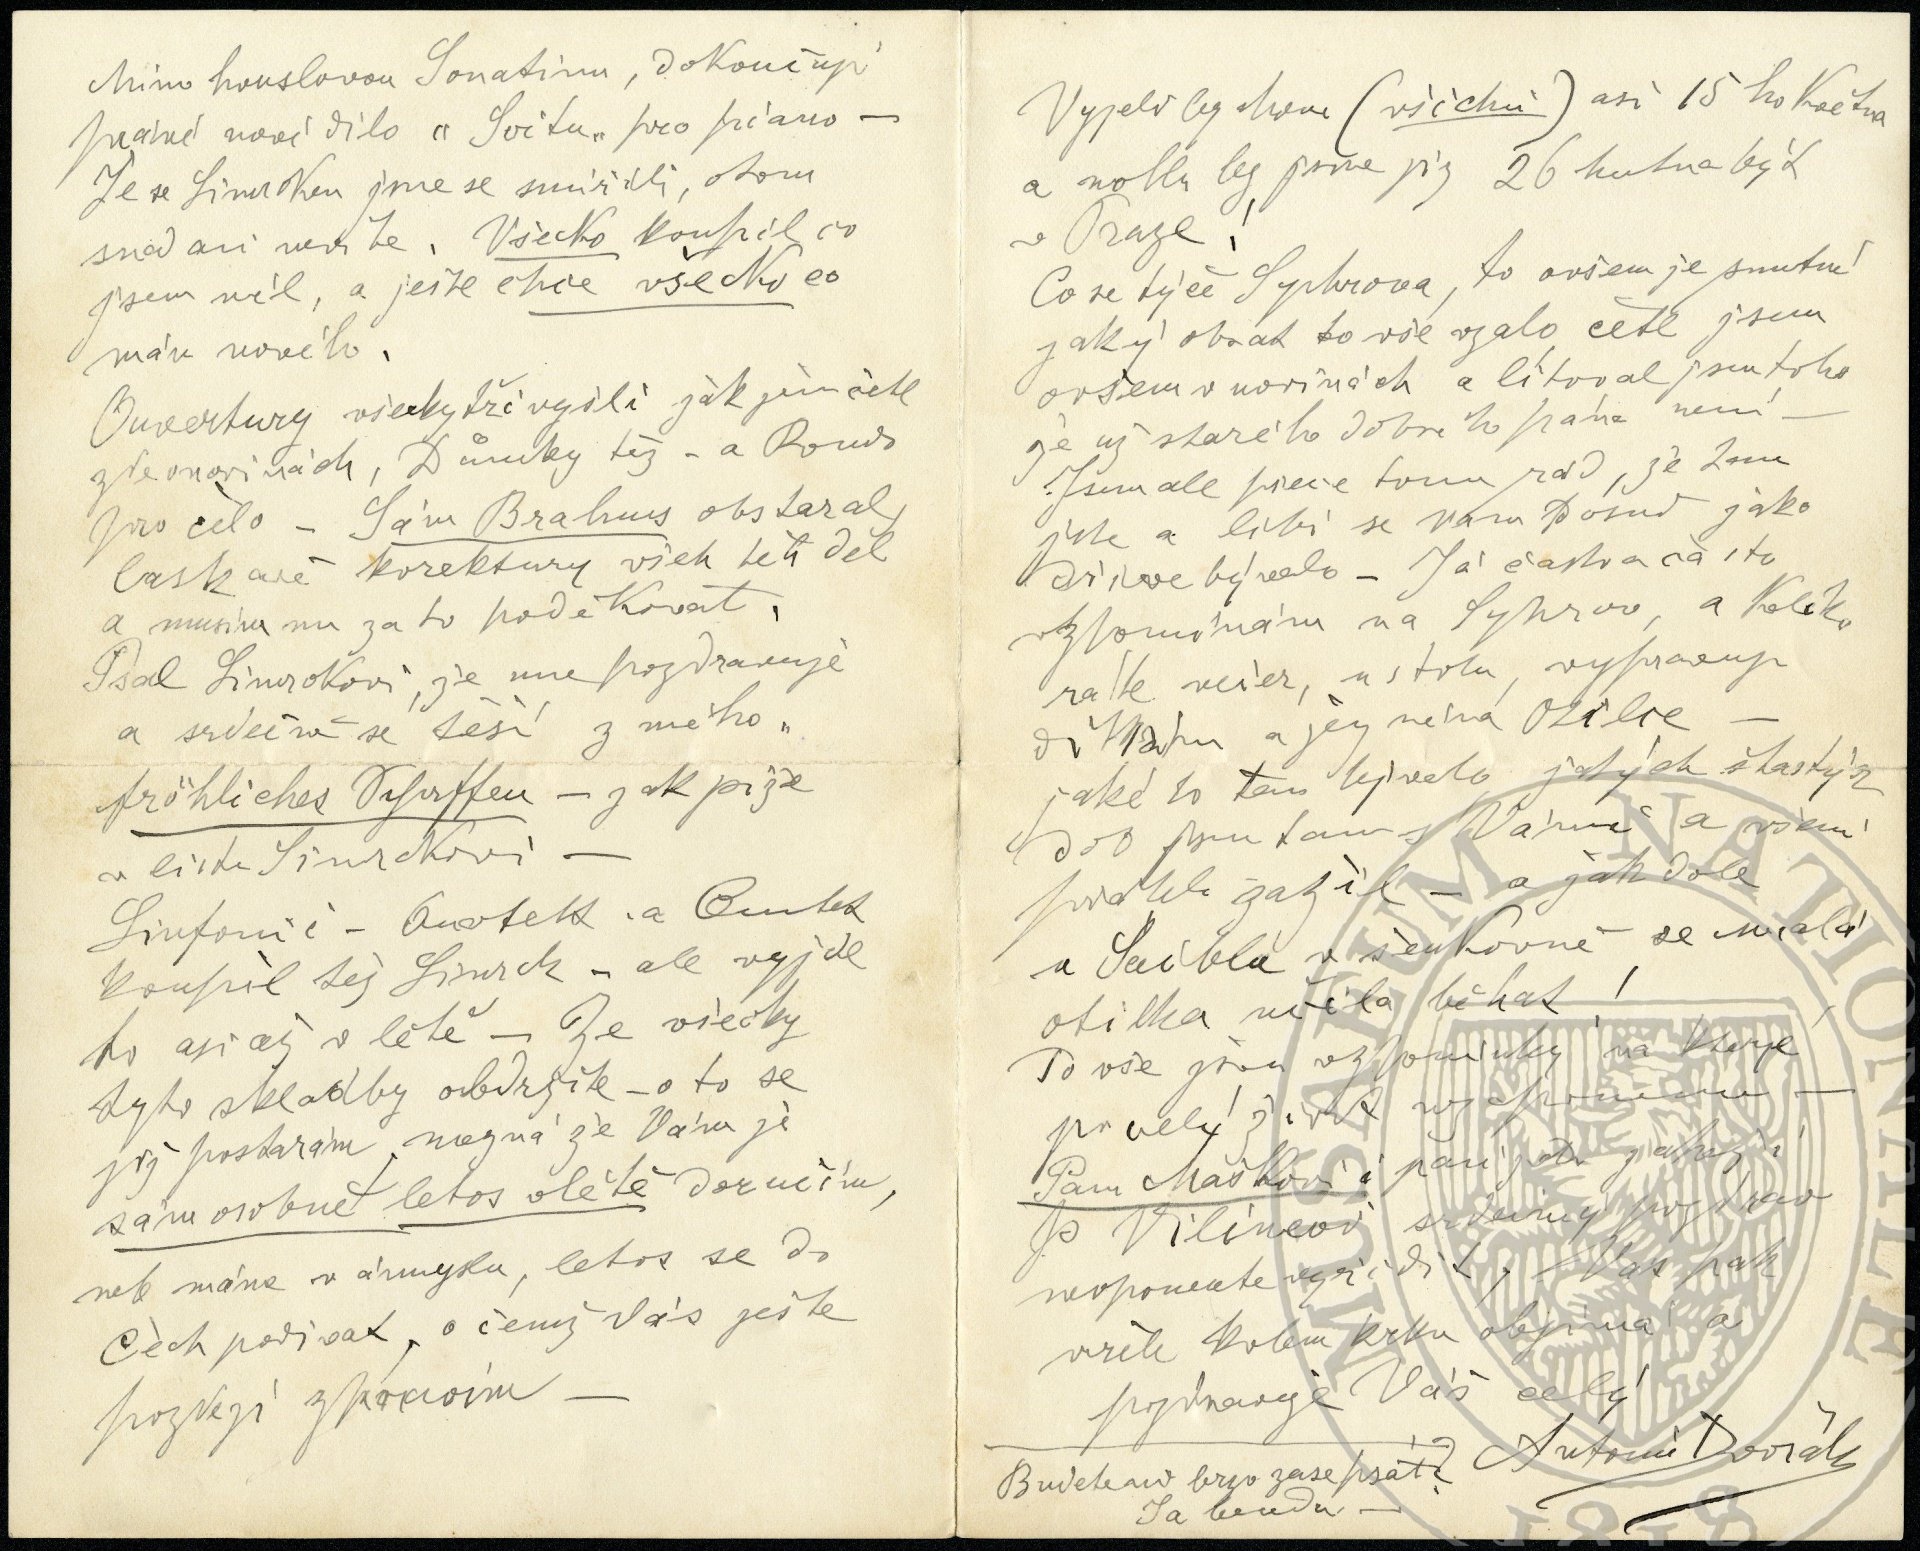 Mimo houslovou Sonatinu, dokončuji
právě nové dílo „Svitu„ pro piano —
Že se Simrokem jsme se smířili, o tom
snad ani nevíte. Všecko koupil co
jsem měl, a ještě chce všecko co
mám nového.
Ouvertury všecky tři vyšli jak jsem četl
zde v novinách, Dumky též - a Rondo
pro čelo – Sám Brahms obstaral,
laskavě korektury všech těch děl
a musím mu za to poděkovat.
Psal Simrokovi, že mne pozdravuje
a srdečně se těší z mého „
fröhliches Schaffen – jak píše
v listu Simrokovi —
Sinfonii – Quartett a Quintet
koupil též Simrock – ale vyjde
to asi až v létě – Že všecky
tyto skladby obdržíte – o to se
již postarám, možná že Vám je
sám osobně letos v létě doručím,
neb máme v úmyslu, letos se do
Čech podívat, o čemž Vás ještě
později zpravím —
Vyjeli bychom (všichni) asi 15ho Května
a mohli by jsme již 26 hutna být
v Praze!
Co se týče Sychrova, to ovšem je smutné
jaký obrat to vše vzalo, četl jsem
ovšem v novinách a litoval jsem toho
že už starého dobrého pána není —
Jsem ale přece tomu rád, že tam
jste a líbí se Vám Dosud jako
dříve bývalo – Já často a často
vzpomínám na Sychrov, a kolik
ráte večer, u stolu, vypravuji
dítkám a jmenovitě Otilce —
jaké to tam bývalo, jakých šťastných
dob jsem tam s Vámi a všemi
přáteli zažil — a jak dole
u Saiblů v šenkovně se malá
otilka učila běhat!
To vše jsou vzpomínky na které
po celý život nezapomenu —
Panu Maškovi i paní jeho jakož i
P Vilímcovi srdečný pozdrav
neopomeňte vyřídit, Vás pak
vřele kolem krku objímá a
pozdravuje Váš celý
Antonín Dvořák
Budete mě brzo zase psáti?
Já budu —